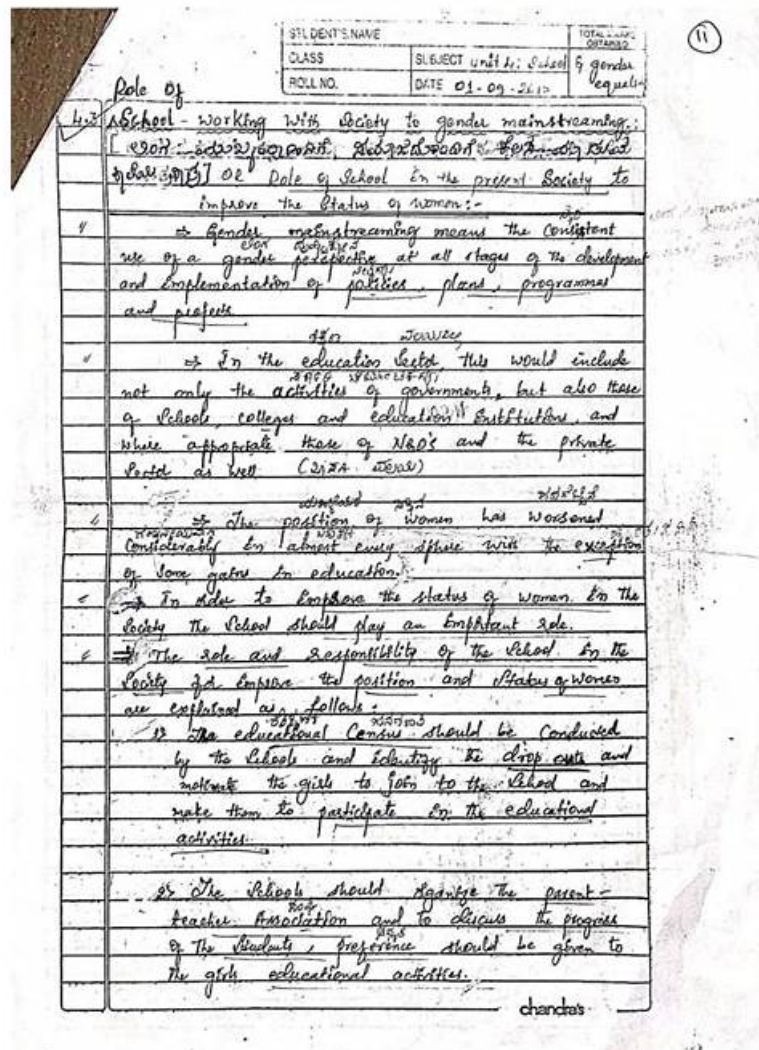 11
STUDENT'S NAME
TOTAL MARKS OBTAINED
CLASS SUBJECT unit 4: School & gender equality
ROLL NO. DATE 01-09-
Role of
4.3 School - working with Society to gender mainstreaming:
OR Role of School in the present Society to
improve the Status of women:-
⇒ Gender mainstreaming means the Consistent
use of a gender perspective at all stages of the development
and implementation of policies, plans, programmes
and projects.
⇒ In the education Sector, this would include
not only the activities of governments, but also those
of Schools, colleges and education institutions, and
where appropriate those of NGO's and the private
Sector as well
⇒ The position of women has worsened
Considerably in almost every sphere with the exception
of some gains in education.
⇒ In order to improve the status of women in the
Society the School should play an important role.
⇒ The role and responsibility of the School in the
Society for improve the position and status of women
are explained as follows:
1> The educational Census should be conducted
by the Schools and identify the drop outs and
motivate the girls to join to the School and
make them to participate in the educational
activities.
2> The Schools should organize the parent-
teacher Association and to discuss the progress
of the Students, preference should be given to
the girls educational activities.
chandra's